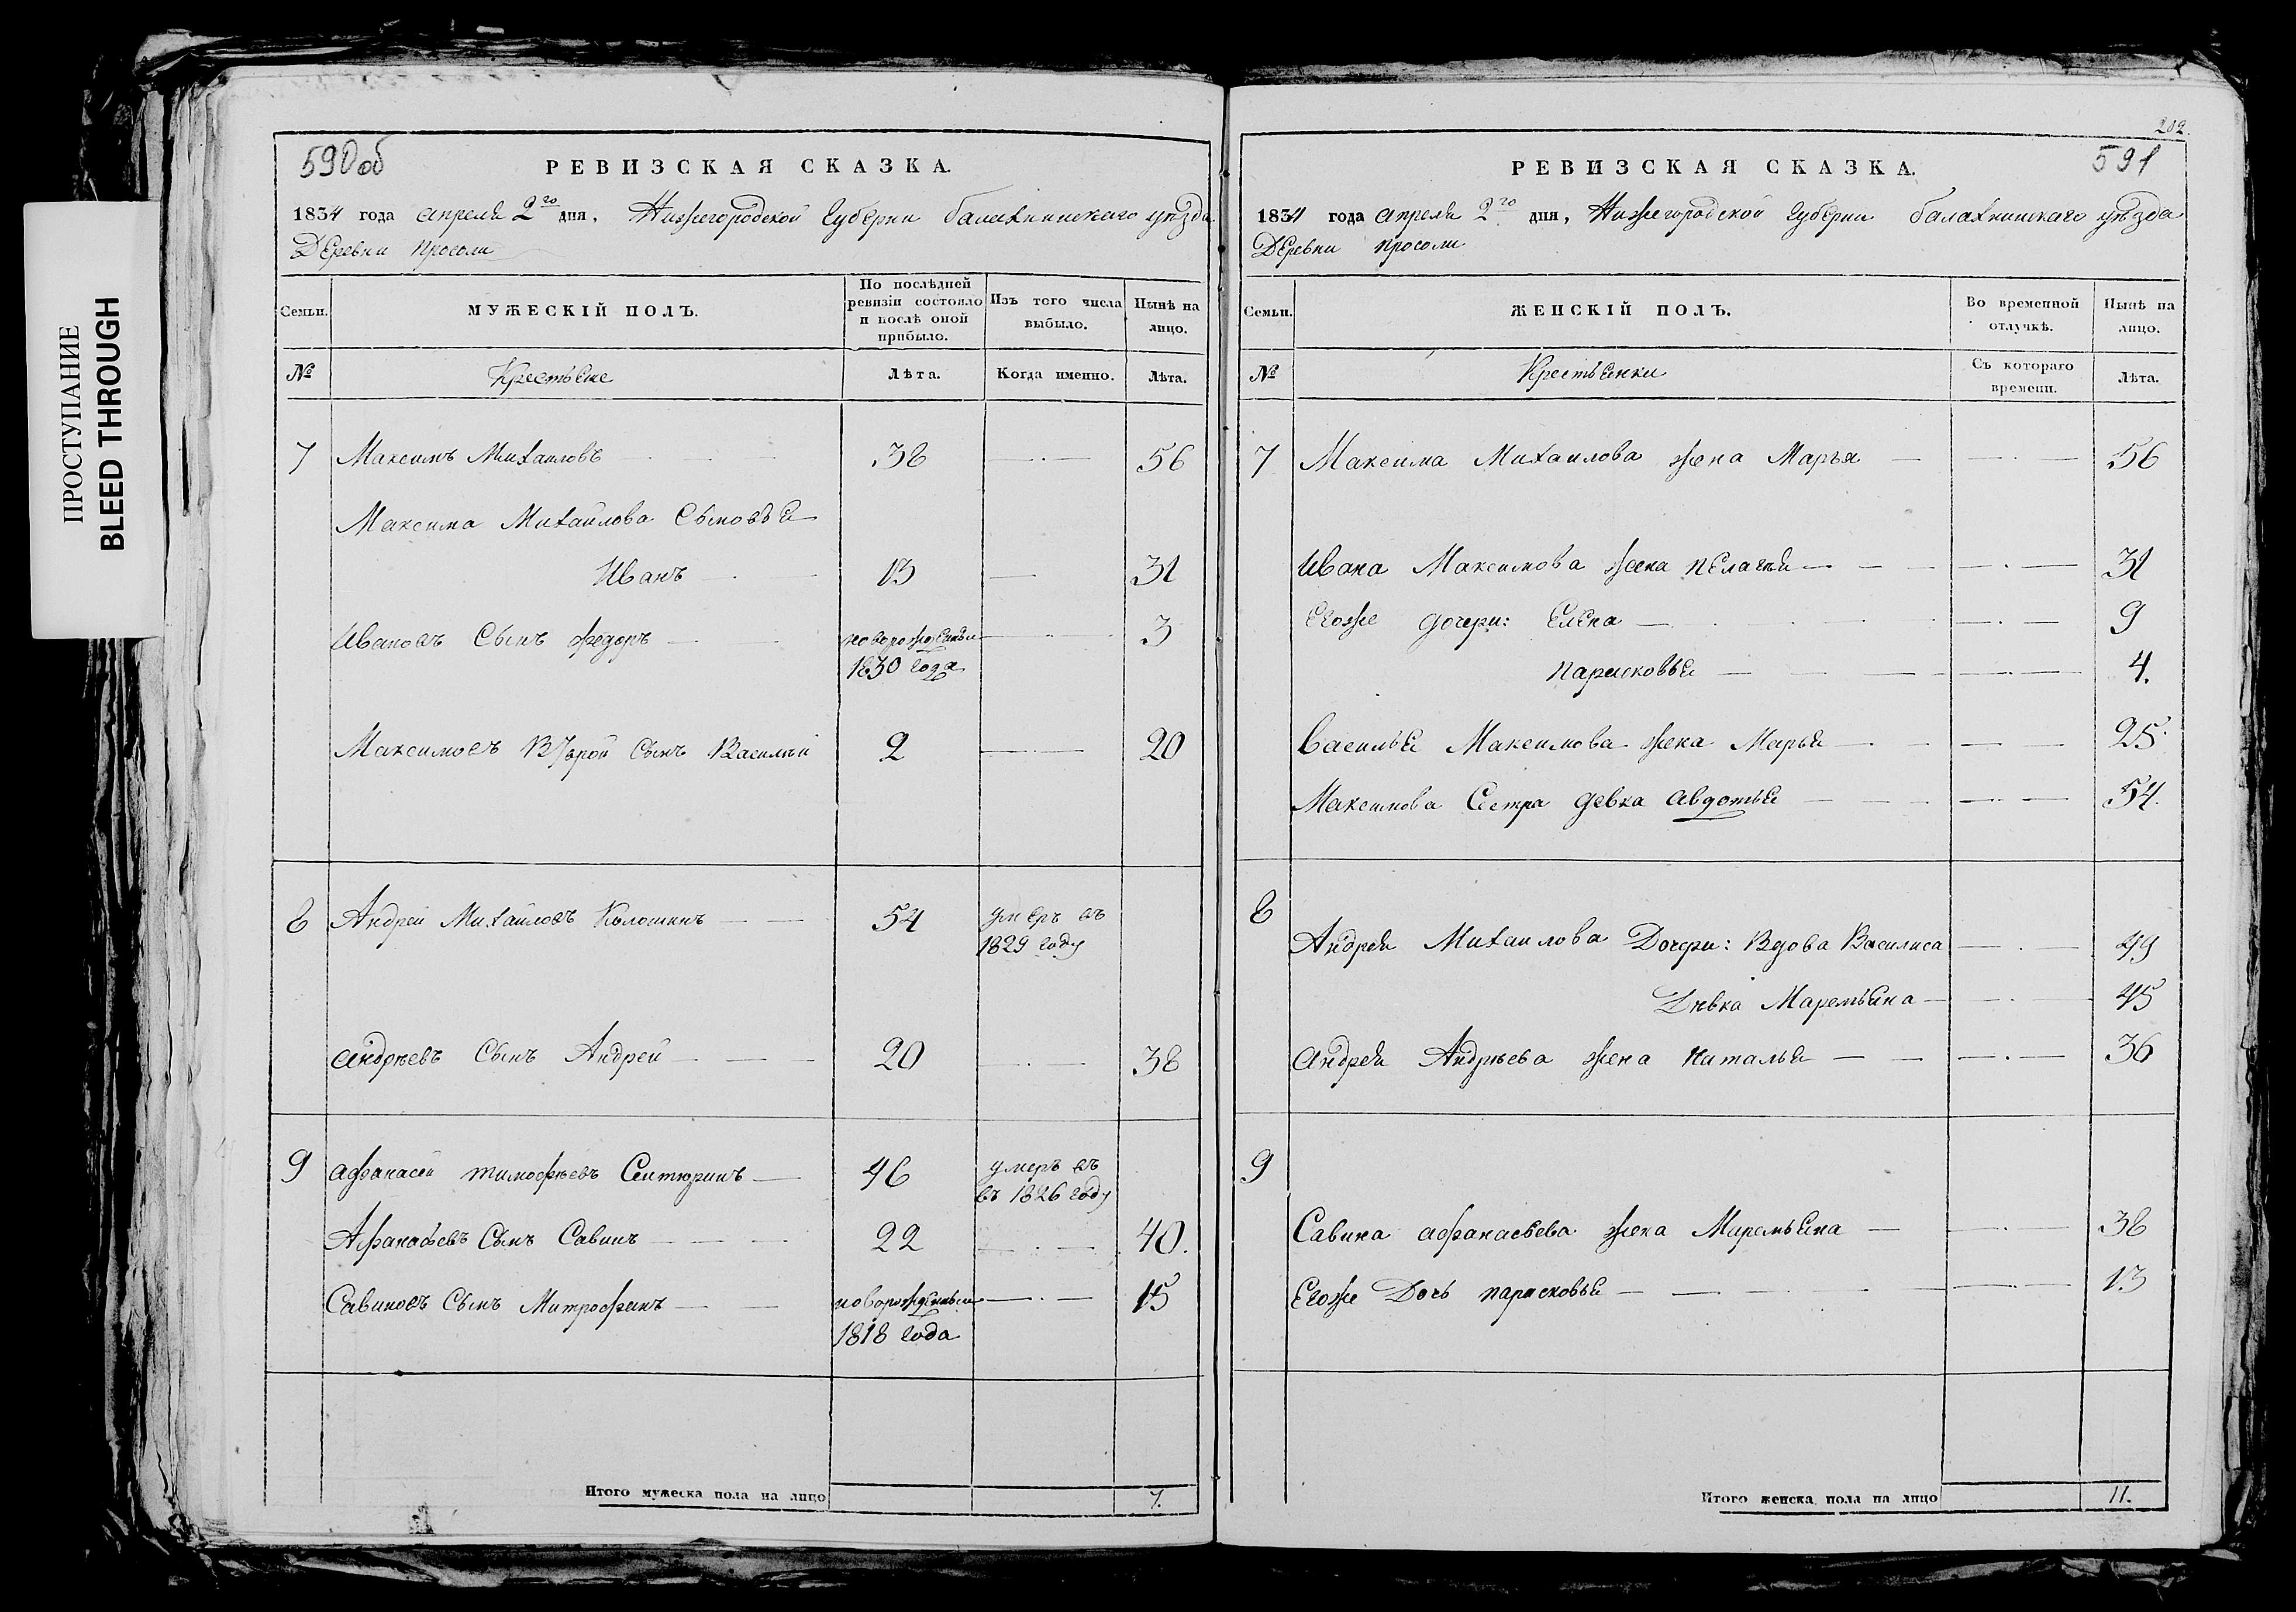 ПРОСТУПАНИЕ
BLEED THROUGH
590 об
РЕВИЗСКАЯ СКАЗКА.
1834 года апреля 2го дня, Нижегородской Губернии балахнинскаго уѣзда
Деревни
Семьи.
МУЖЕСКІЙ ПОЛЪ.
По послѣдней ревизіи состояло и послѣ оной прибыло.
Изъ того числа выбыло.
Нынѣ на лицо.
№
Крестьяне
Лѣта.
Когда именно.
Лѣта.
7 Максимъ Михаиловъ 38 56
Максима Михайлова Сыновья
Иванъ 13 31
Ивановъ Сынъ Федоръ новорожденный 3
1830 года
Максимовъ Второй Сынъ Василий 2 20
8 Андрей Михайловъ 54 умеръ въ
1829 году
андрѣевъ Сынъ Андрей 20 38
9 афанасей тимофѣевъ 46 умеръ въ
въ 1826 году
Афанасьевъ Сынъ Савинъ 22 40.
Савиновъ Сынъ Митрофанъ новорожденный 15
1818 года
Итого мужеска пола на лицо 7.
202.
591
РЕВИЗСКАЯ СКАЗКА.
1834 года апреля 2го дня, Нижегородской Губернии балахнинскаго уѣзда
Деревни
Семьи.
ЖЕНСКІЙ ПОЛЪ.
Во временной отлучкѣ.
Нынѣ на лицо.
№
Крестьянки
Съ котораго времени.
Лѣта.
7 Максима Михаилова жена Марья 56
Ивана Максимова жена пелагея 31
Егоже дочери: Елена 9
парасковья 4.
Василья Максимова жена Марья 25.
Максимова Сестра девка авдотья 54.
8
Андрея Михаилова Дочери: Вдова Василиса 49
Дѣвка Маремьяна 45
андрея Андрѣева жена наталья 36
9
Савина афанасьева жена Маремьяна 38
Егоже Дочь парасковья 13
Итого женска пола на лицо 11.